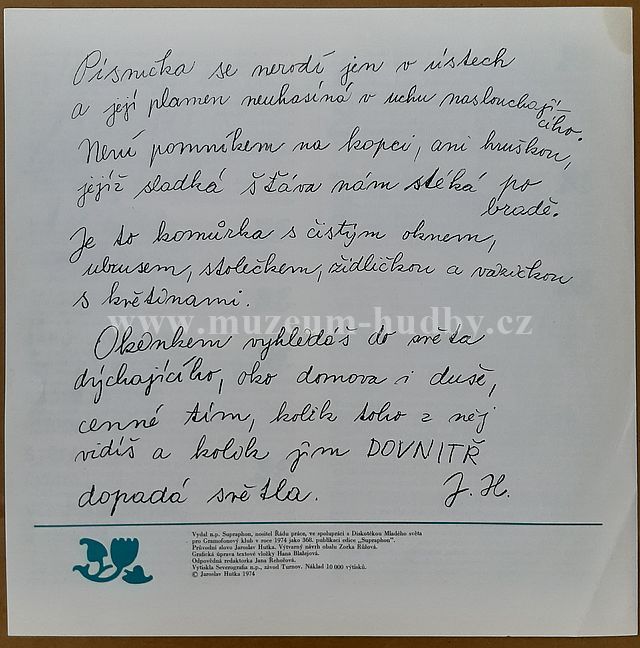 Písnička se nerodí jen v ústech
a její plamen neuhasíná v uchu naslouchají-
cího.
Není pomníkem na kopci, ani hruškou,
jejíž sladká šťáva nám stéká po
bradě.
Je to komůrka s čistým oknem,
ubrusem, stolečkem, židličkou a vázičkou
s květinami.
www.muzeum-hudby.cz
Okénkem vyhlédáš do světa
dýchajícího, oko domova i duše,
cenné tím, kolik toho z něj
vidíš a kolik jím DOVNITŘ
dopadá světla. J. H.
Vydal n.p. Supraphon, nositel Řádu práce, ve spolupráci s Diskotékou Mladého světa
pro Gramofonový klub v roce 1974 jako 368. publikaci edice „Supraphon".
Průvodní slovo Jaroslav Hutka. Výtvarný návrh obalu Zorka Růžová.
Grafická úprava textové vložky Hana Blažejová.
Odpovědná redaktorka Jana Řehořová.
Vytiskla Severografia n.p., závod Turnov. Náklad 10 000 výtisků.
© Jaroslav Hutka 1974